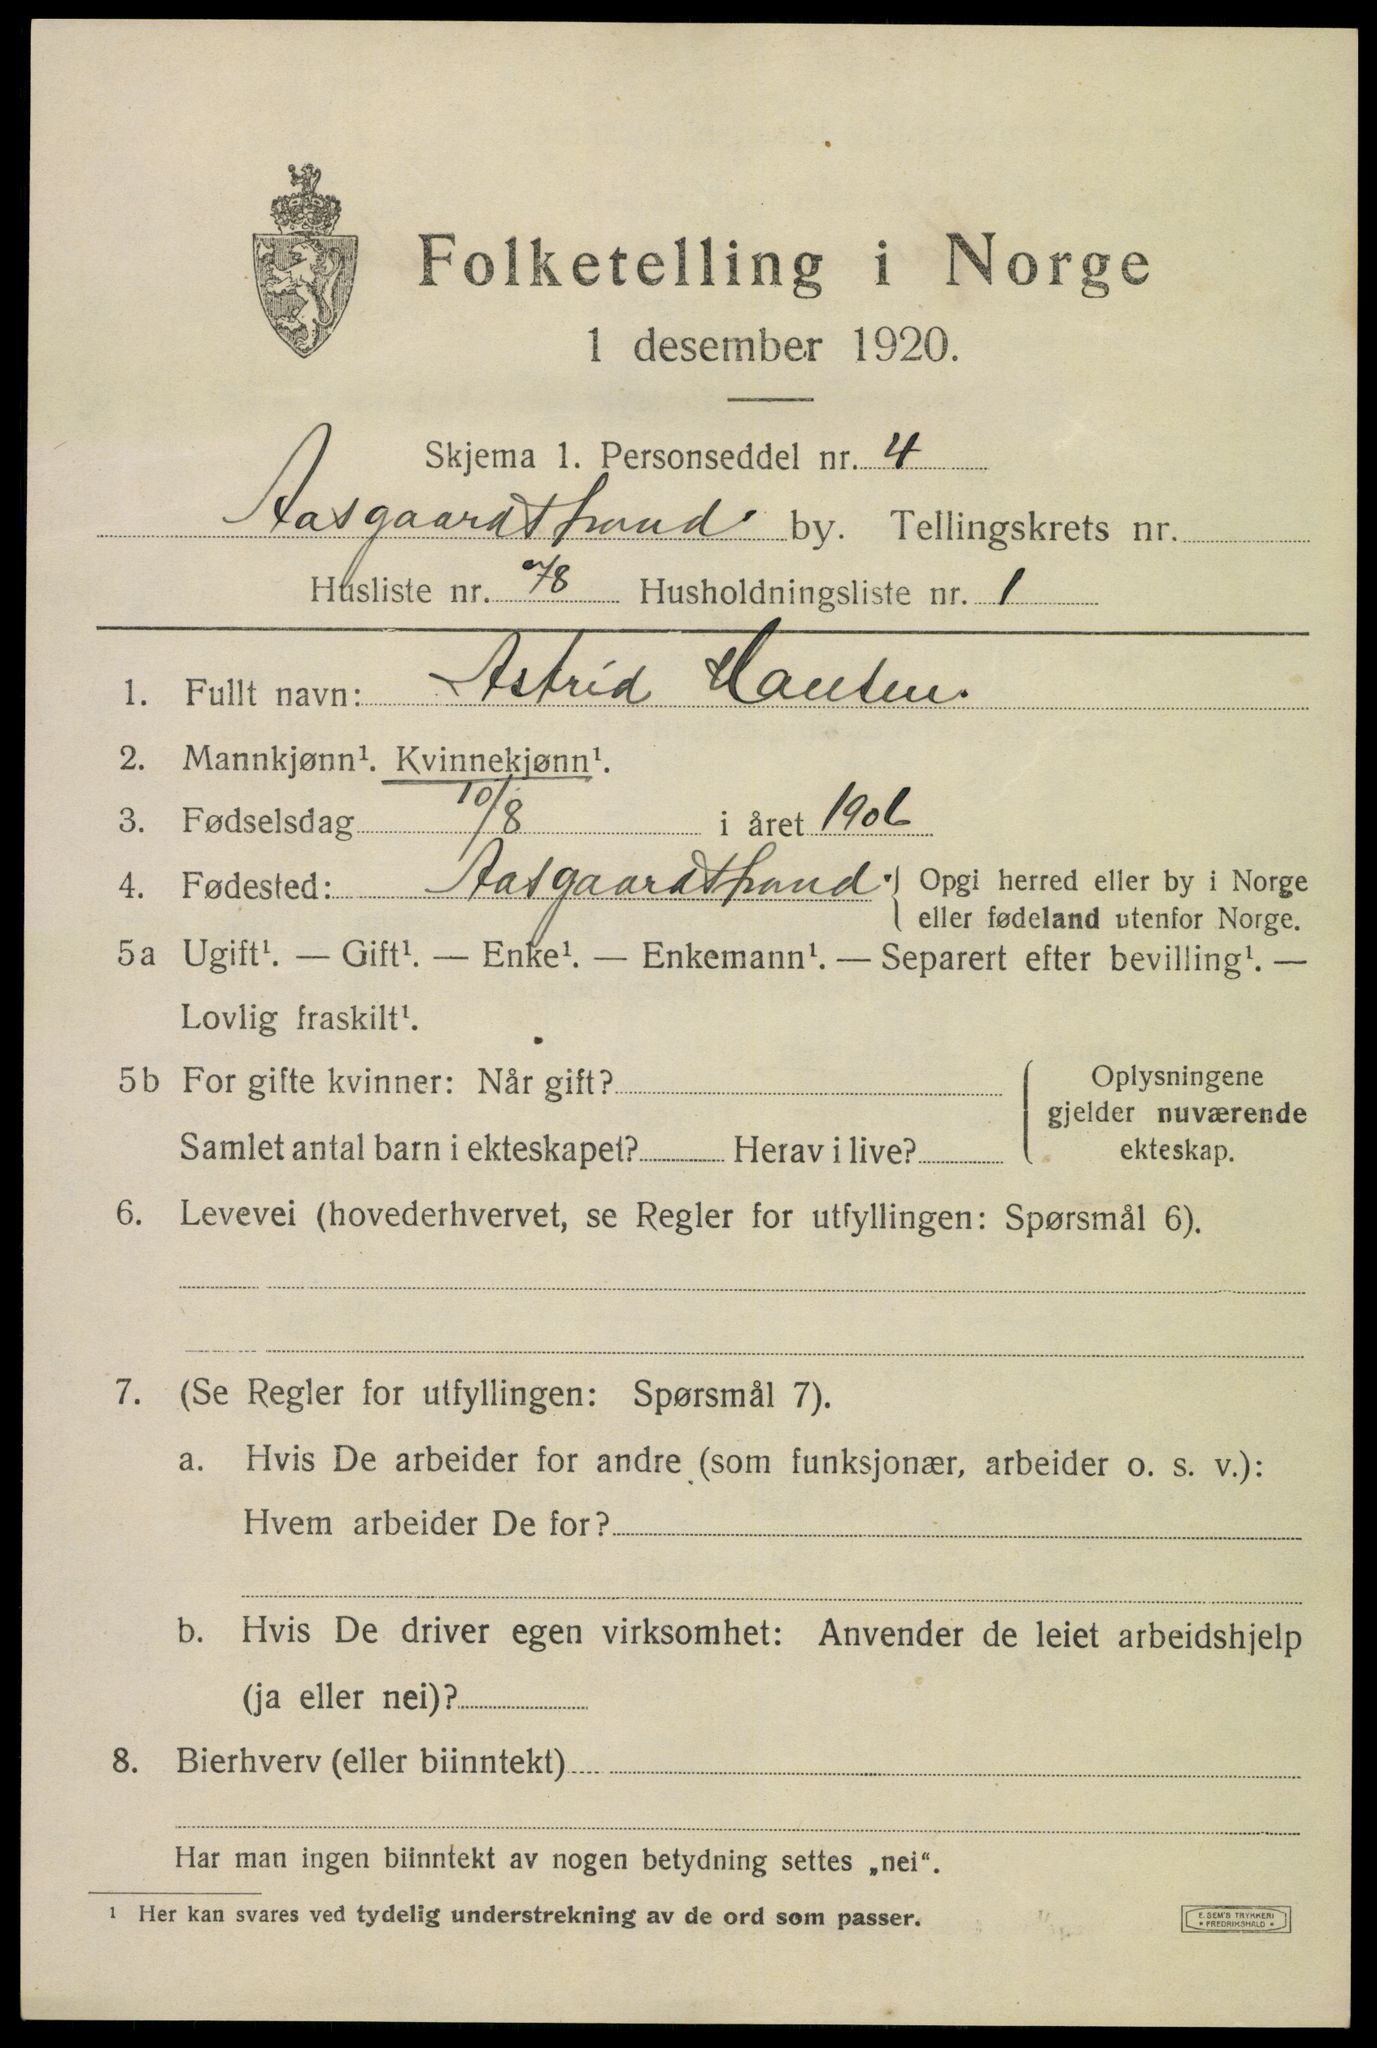 Folketelling i Norge
1 desember 1920.
Skjema 1. Personseddel nr. 4
Aasgaardstrand by. Tellingskrets nr.
Husliste nr. 78 Husholdningsliste nr. 1
1. Fullt navn: Astrid Hansen.
2. Mannkjønn¹. Kvinnekjønn¹.
3. Fødselsdag 10/8 i året 1906
4. Fødested: Aasgaardstrand. Opgi herred eller by i Norge
eller fødeland utenfor Norge.
5a Ugift¹. — Gift¹. — Enke¹. — Enkemann¹. — Separert efter bevilling¹. —
Lovlig fraskilt¹.
5b For gifte kvinner: Når gift?
Samlet antal barn i ekteskapet? Herav i live?
Oplysningene
gjelder nuværende
ekteskap.
6. Levevei (hovederhvervet, se Regler for utfyllingen: Spørsmål 6).
7. (Se Regler for utfyllingen: Spørsmål 7).
a. Hvis De arbeider for andre (som funksjonær, arbeider o. s. v.):
Hvem arbeider De for?
b. Hvis De driver egen virksomhet: Anvender de leiet arbeidshjelp
(ja eller nei)?
8. Bierhverv (eller biinntekt)
Har man ingen biinntekt av nogen betydning settes „nei“.
¹ Her kan svares ved tydelig understrekning av de ord som passer.
E. SEM'S TRYKKERI
* FREDRIKSHALD *